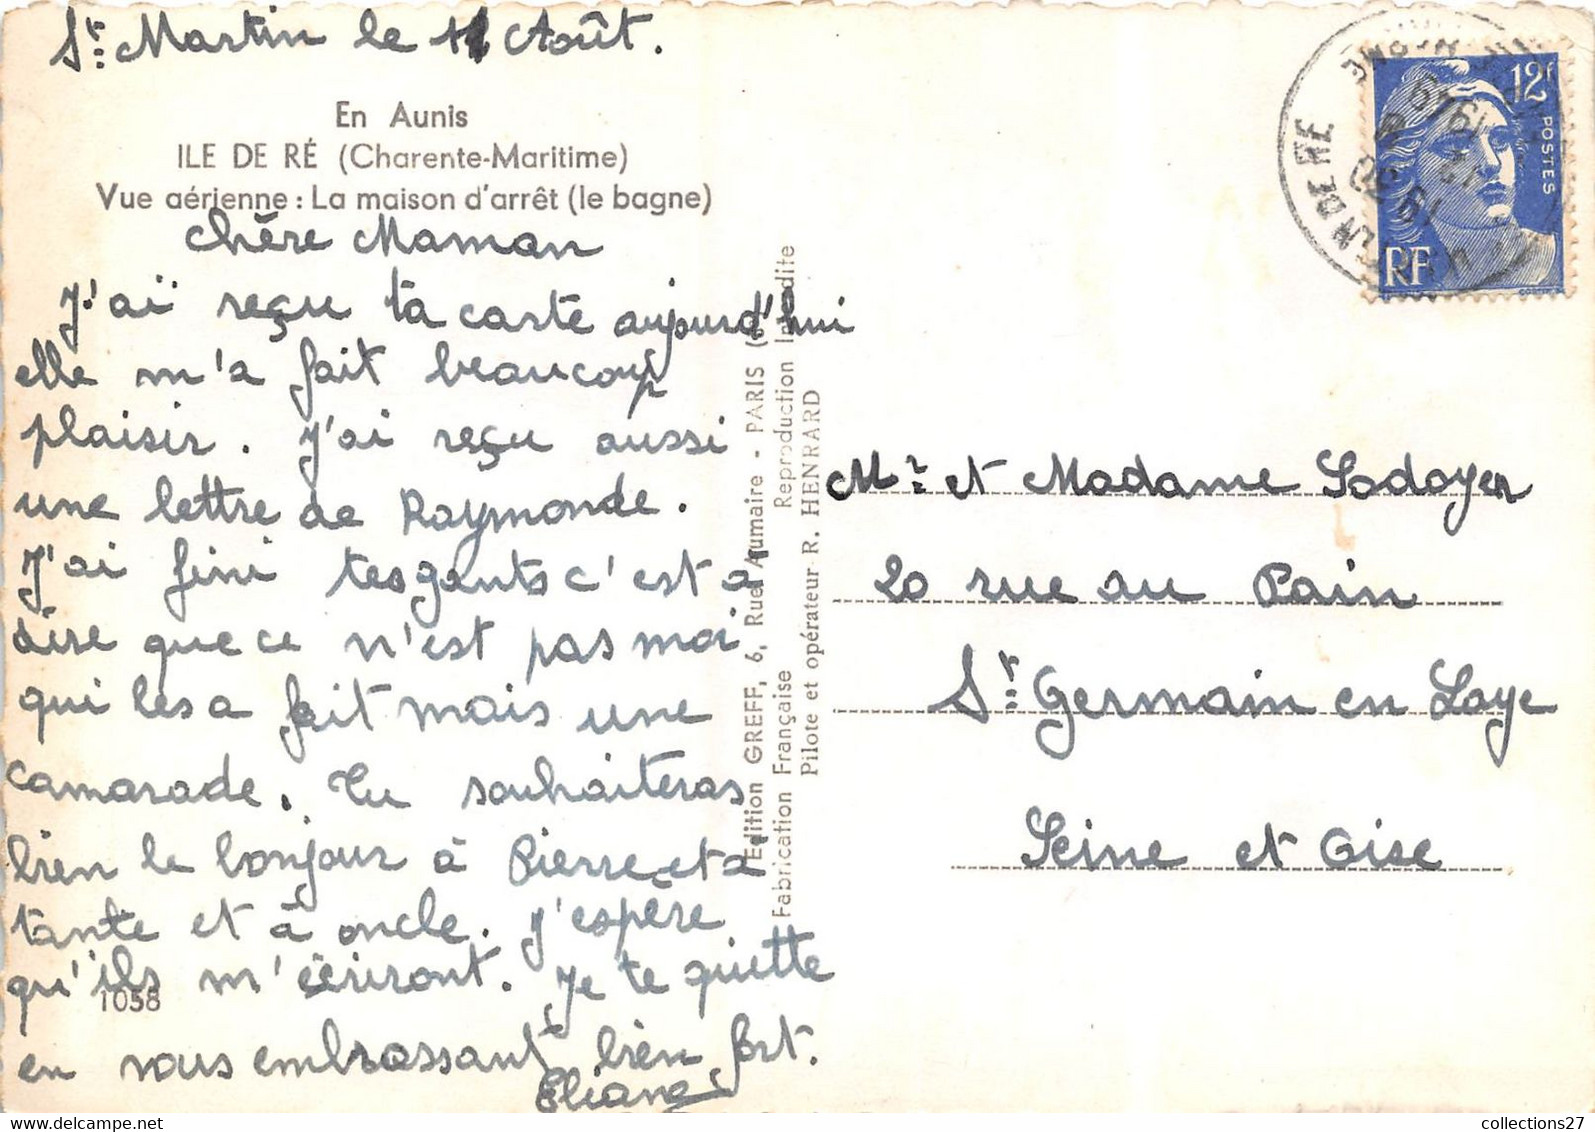 St Martin le 11 Août.
En Aunis
ILE DE RÉ (Charente-Maritime)
Vue aérienne : La maison d'arrêt (le bagne)
Chère Maman
J'ai reçu ta carte aujourd'hui
elle m'a fait beaucoup
plaisir. J'ai reçu aussi
une lettre de Raymonde.
J'ai fini tes gants c'est a
dire que ce n'est pas moi
qui les a fait mais une
camarade. Tu souhaiteras
bien le bonjour à Pierre et a
tante et à oncle. J'espère
qu'ils m'écriront. Je te quitte
en vous embrassant bien fort.
Eliane
1058
Edition GREFF, 6, Rue Aumaire - PARIS
Fabrication Française Reproduction Interdite
Pilote et opérateur R. HENRARD
12f
POSTES
RF
N DE RE
1949
Mr et Madame Lodoyer
20 rue au Pain
St Germain en Laye
Seine et Oise
collections27